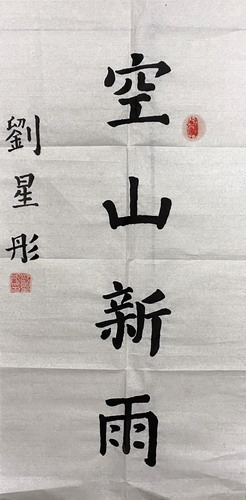 空山新雨
劉星彤